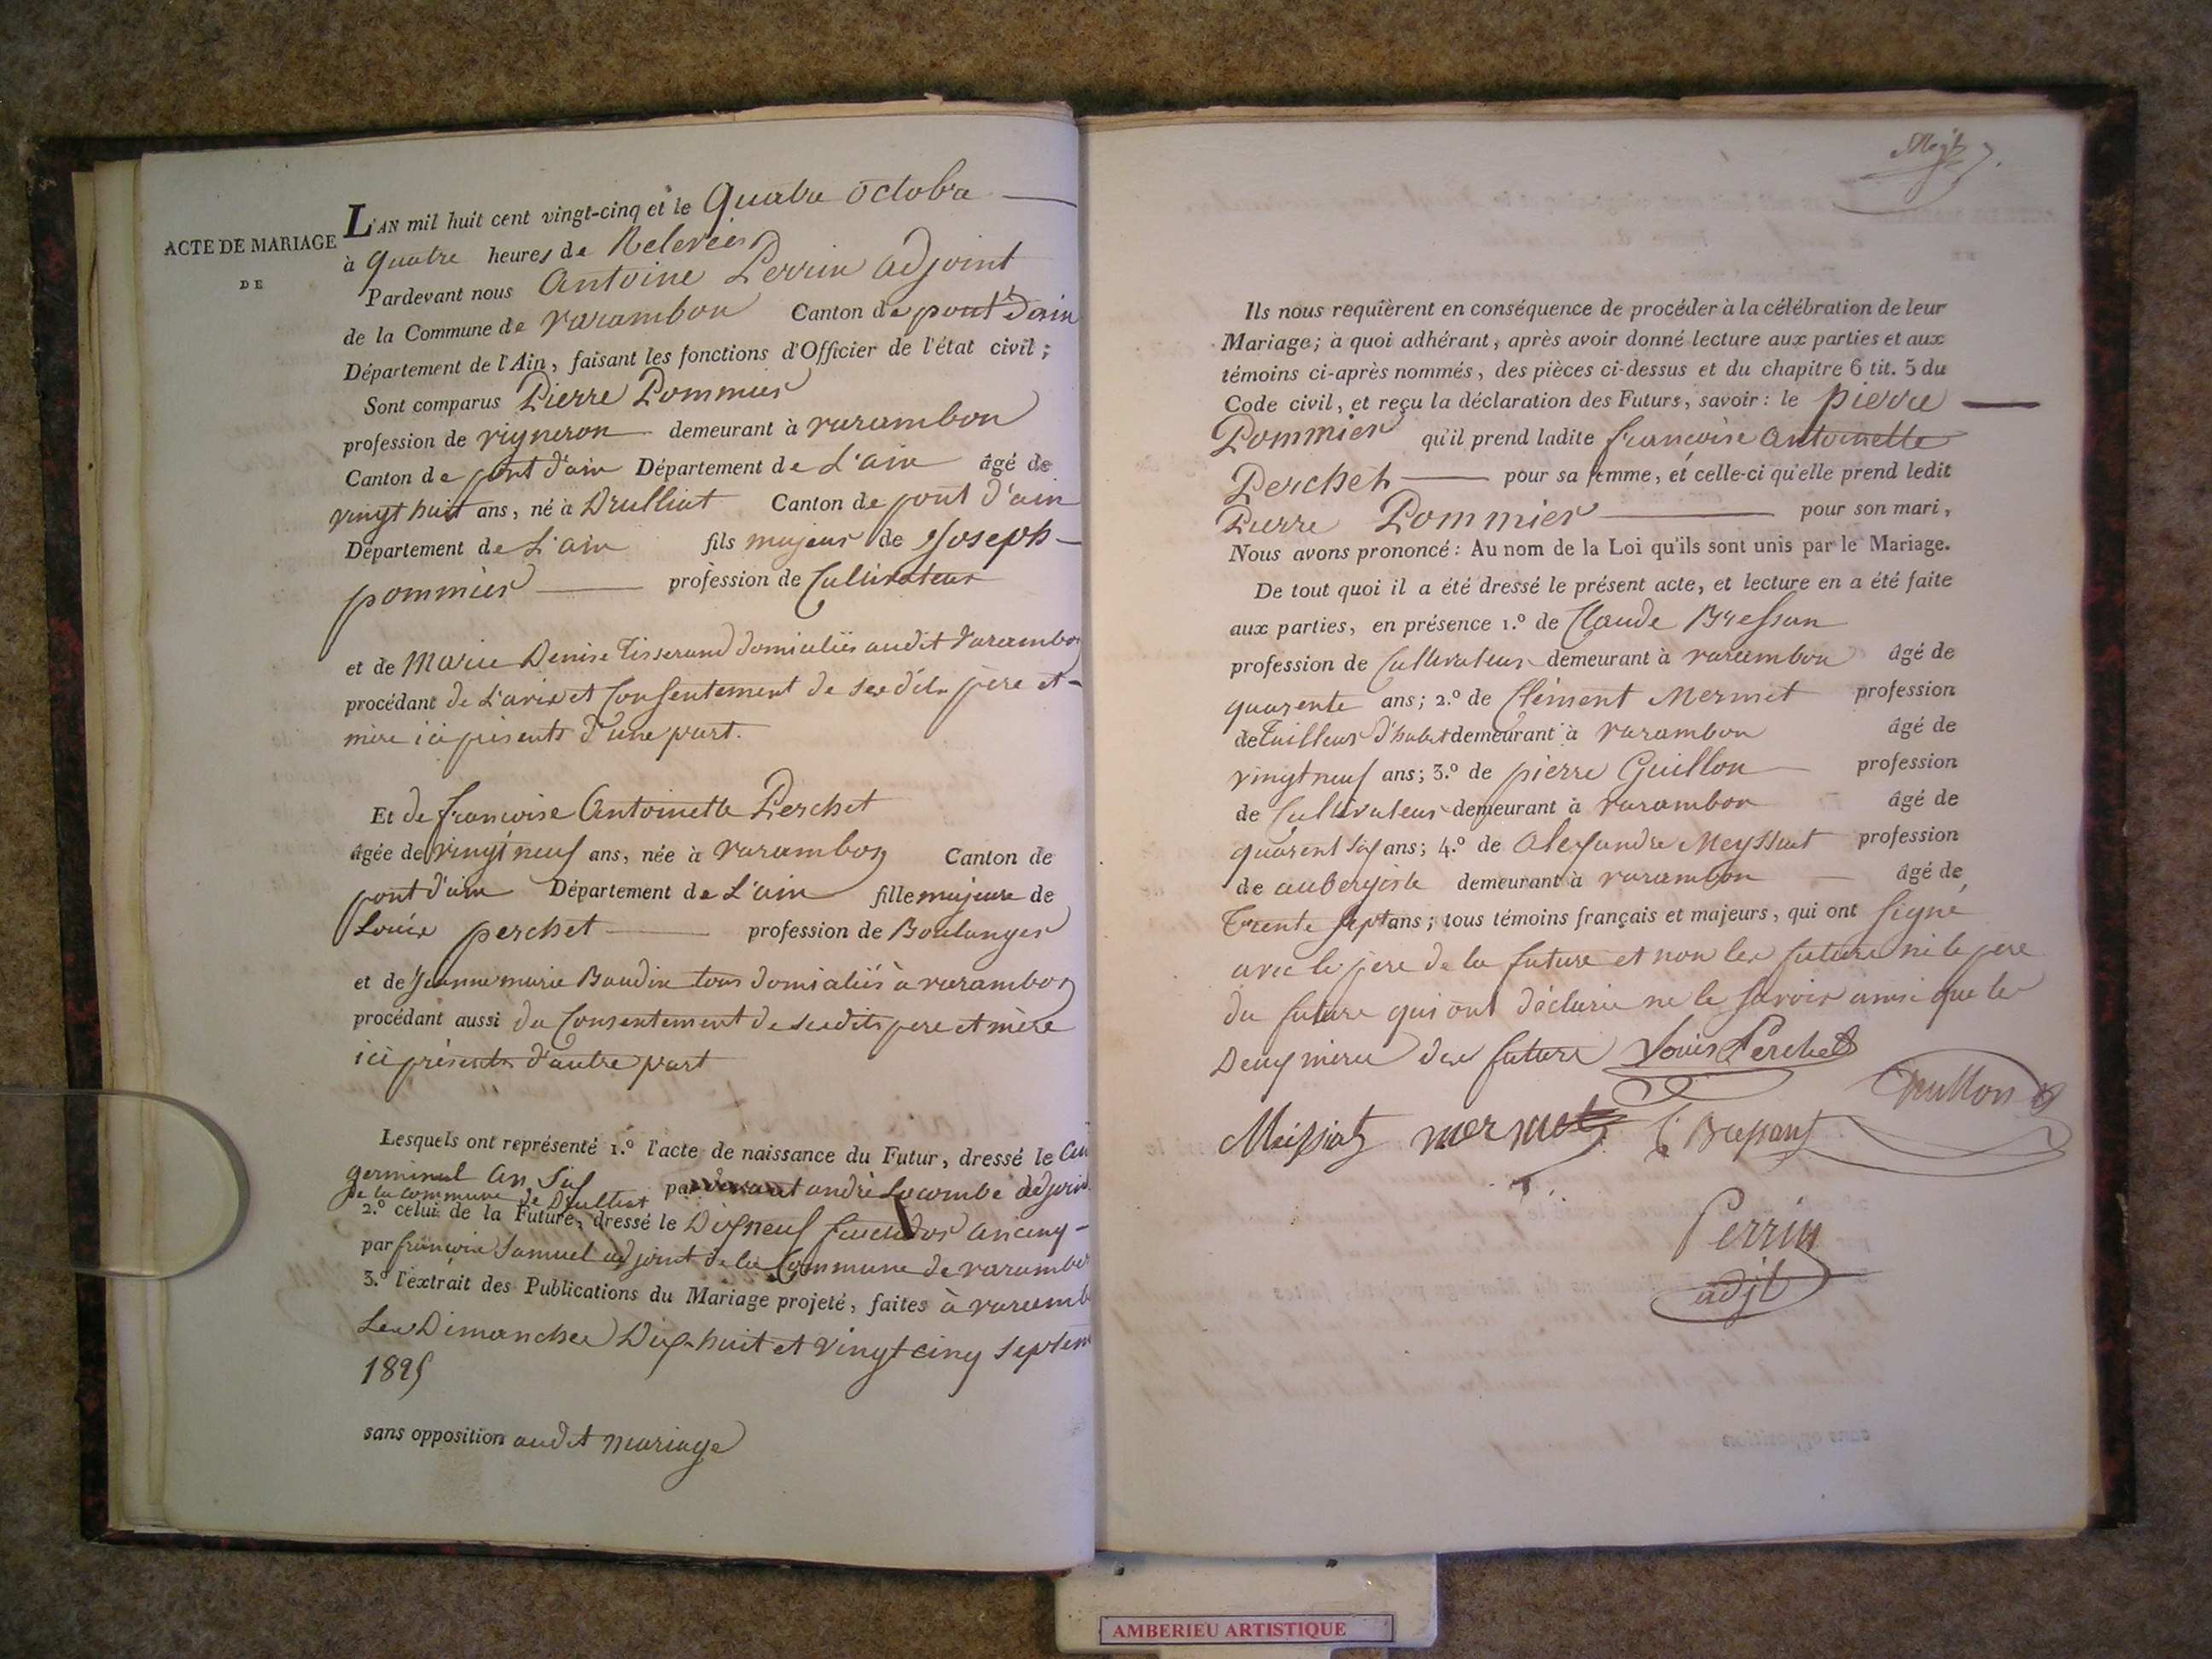 ACTE DE MARIAGE
DE
L'AN mil huit cent vingt-cinq et le quatre octobre
à quatre heures de Relevées
Pardevant nous Antoine Perrin adjoint
de la Commune de varambon Canton de pont d'ain
Département de l'Ain, faisant les fonctions d'Officier de l'état civil;
Sont comparus Pierre Pommier
profession de vigneron demeurant à varambon
Canton de pont d'ain Département de L'ain âgé de
vingt huit ans, né à Druilliat Canton de pont d'ain
Département de L'ain fils majeur de Joseph
pommier profession de Cultivateur
et de Marie Denise Tisserand domiciliés audit varambon
procédant de L'avis et Consentement de ses dits père et
mère ici présents d'une part.
Et de francoise Antoinette Perchet
âgée de vingt neuf ans, née à varambon Canton de
pont d'ain Département de L'ain fille majeure de
Louis perchet profession de Boulanger
et de Jeanne marie Baudin tous domiciliés à varambon
procédant aussi du Consentement de sesdits pere et mère
ici présents d'autre part
Lesquels ont représenté 1.° l'acte de naissance du Futur, dressé le
germinal an Six par andré Lacombe adjoint
de la commune de Druilliat
2.° celui de la Future, dressé le Dixneuf an cinq
par francois Samuel adjoint de la Commune de varambon
3.° l'extrait des Publications du Mariage projeté, faites à varamb
Les Dimanches Dix-huit et vingt cinq septem
1825
sans opposition audit mariage
Ils nous requièrent en conséquence de procéder à la célébration de leur
Mariage; à quoi adhérant, après avoir donné lecture aux parties et aux
témoins ci-après nommés, des pièces ci-dessus et du chapitre 6 tit. 5 du
Code civil, et reçu la déclaration des Futurs, savoir: le pierre
Pommier qu'il prend ladite francoise Antoinette
Perchet pour sa femme, et celle-ci qu'elle prend ledit
Pierre Pommier pour son mari,
Nous avons prononcé: Au nom de la Loi qu'ils sont unis par le Mariage.
De tout quoi il a été dressé le présent acte, et lecture en a été faite
aux parties, en présence 1.° de Claude Bressan
profession de Cultivateur demeurant à varambon âgé de
quarente ans; 2.° de Clément Mermet profession
de Tailleur d'habit demeurant à varambon âgé de
vingt neuf ans; 3.° de pierre Guillon profession
de Cultivateur demeurant à varambon âgé de
quarent six ans; 4.° de Alexandre Meyssiat profession
de aubergiste demeurant à varambon âgé de
Trente sept ans; tous témoins français et majeurs, qui ont signé
avec le pere de la future et non les futurs ni le pere
du future qui ont déclaré ne le savoir ainsi que les
Deux meres des futurs Louis Perchet
Guillon
Meissiat mermet C. Bressan
Perrin
adjt
AMBERIEU ARTISTIQUE